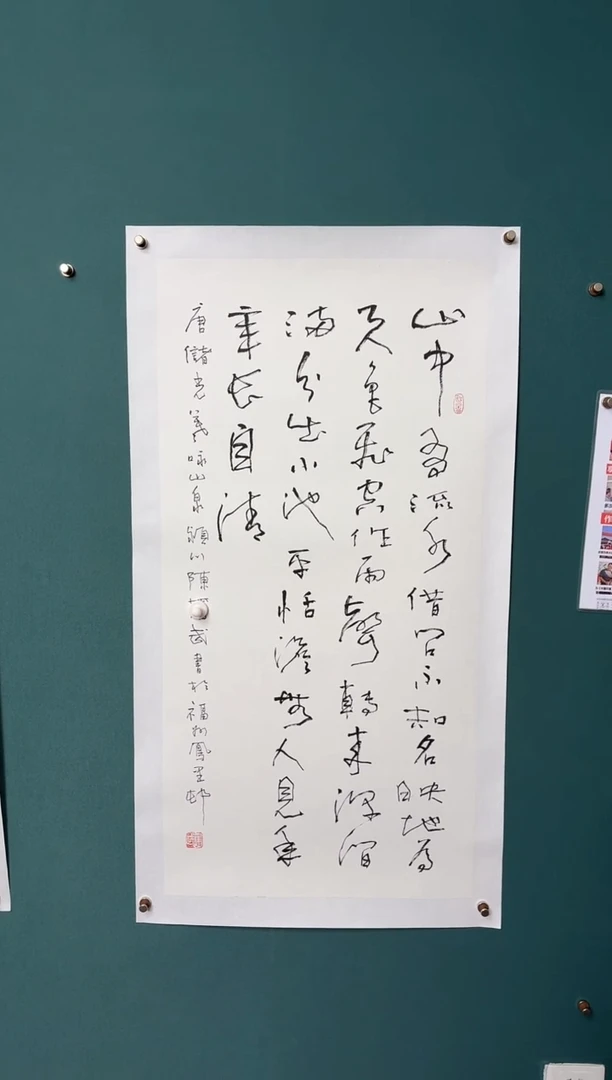 山中有流水借問不知名映地為
天色飛空作雨聲轉來深澗
滿分出小池平恬澹無人見年
年長自清
唐儲光羲咏山泉潁川陳武書於福州鳳里邨